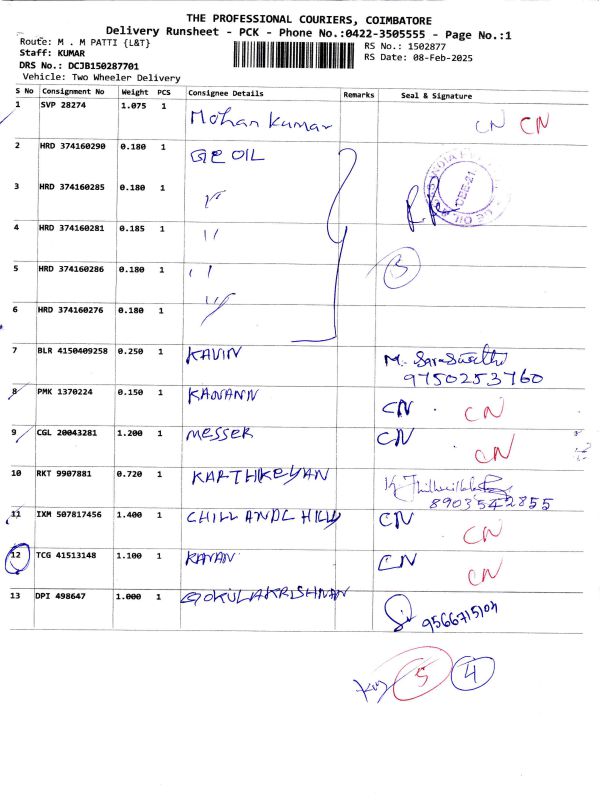 THE PROFESSIONAL COURIERS, COIMBATORE
Delivery Runsheet - PCK - Phone No.:0422-3505555 - Page No.:1
Route: M . M PATTI {L&T} RS No.: 1502877
Staff: KUMAR RS Date: 08-Feb-2025
DRS No.: DCJB150287701
Vehicle: Two Wheeler Delivery
S No Consignment No Weight PCS Consignee Details Remarks Seal & Signature
1 SVP 28274 1.075 1 Mohan Kumar CN CN
2 HRD 374160290 0.180 1 GE OIL
3 HRD 374160285 0.180 1 "
4 HRD 374160281 0.185 1 "
5 HRD 374160286 0.180 1 " 3
6 HRD 374160276 0.180 1 "
7 BLR 4150409258 0.250 1 KAVIN M. Saraswathi
9750253760
8 PMK 1370224 0.150 1 KANANN CN CN
9 CGL 20043281 1.200 1 MESSER CN CN
10 RKT 9907881 0.720 1 KARTHIKEYAN
8903542855
11 IXM 507817456 1.400 1 CHILL ANDC HILLY CN CN
12 TCG 41513148 1.100 1 KANAN CN CN
13 DPI 498647 1.000 1 GOKULAKRISHNAN
9566715104
5 4